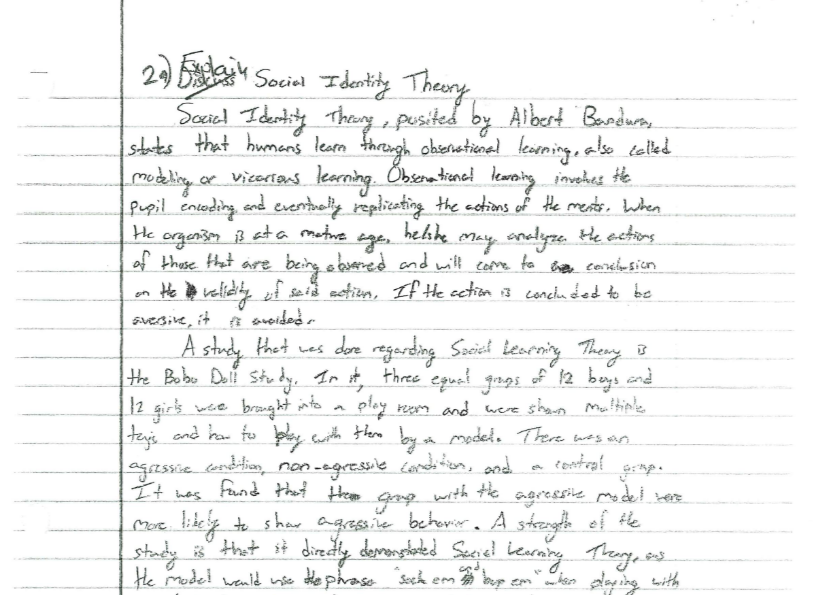 2a) Explain Discuss Social Identity Theory
Social Identity Theory, posited by Albert Bandura,
states that humans learn through observational learning, also called
modeling or vicarious learning. Observational learning involves the
pupil encoding and eventually replicating the actions of the mentor. When
the organism is at a mature age, he/she may analyze the actions
of those that are being observed and will come to conclusion
on the validity of said action. If the action is concluded to be
aversive, it is avoided.
A study that was done regarding Social Learning Theory is
the Bobo Doll Study. In it, three equal groups of 12 boys and
12 girls were brought into a play room and were shown multiple
toys and how to play with them by a model. There was an
agressive condition, non-agressive condition, and a control group.
It was found that group with the agressive model were
more likely to show agressive behavior. A strength of the
study is that it directly demonstrated Social Learning Theory, as
the model would use the phrase "sock em and bop em" when playing with